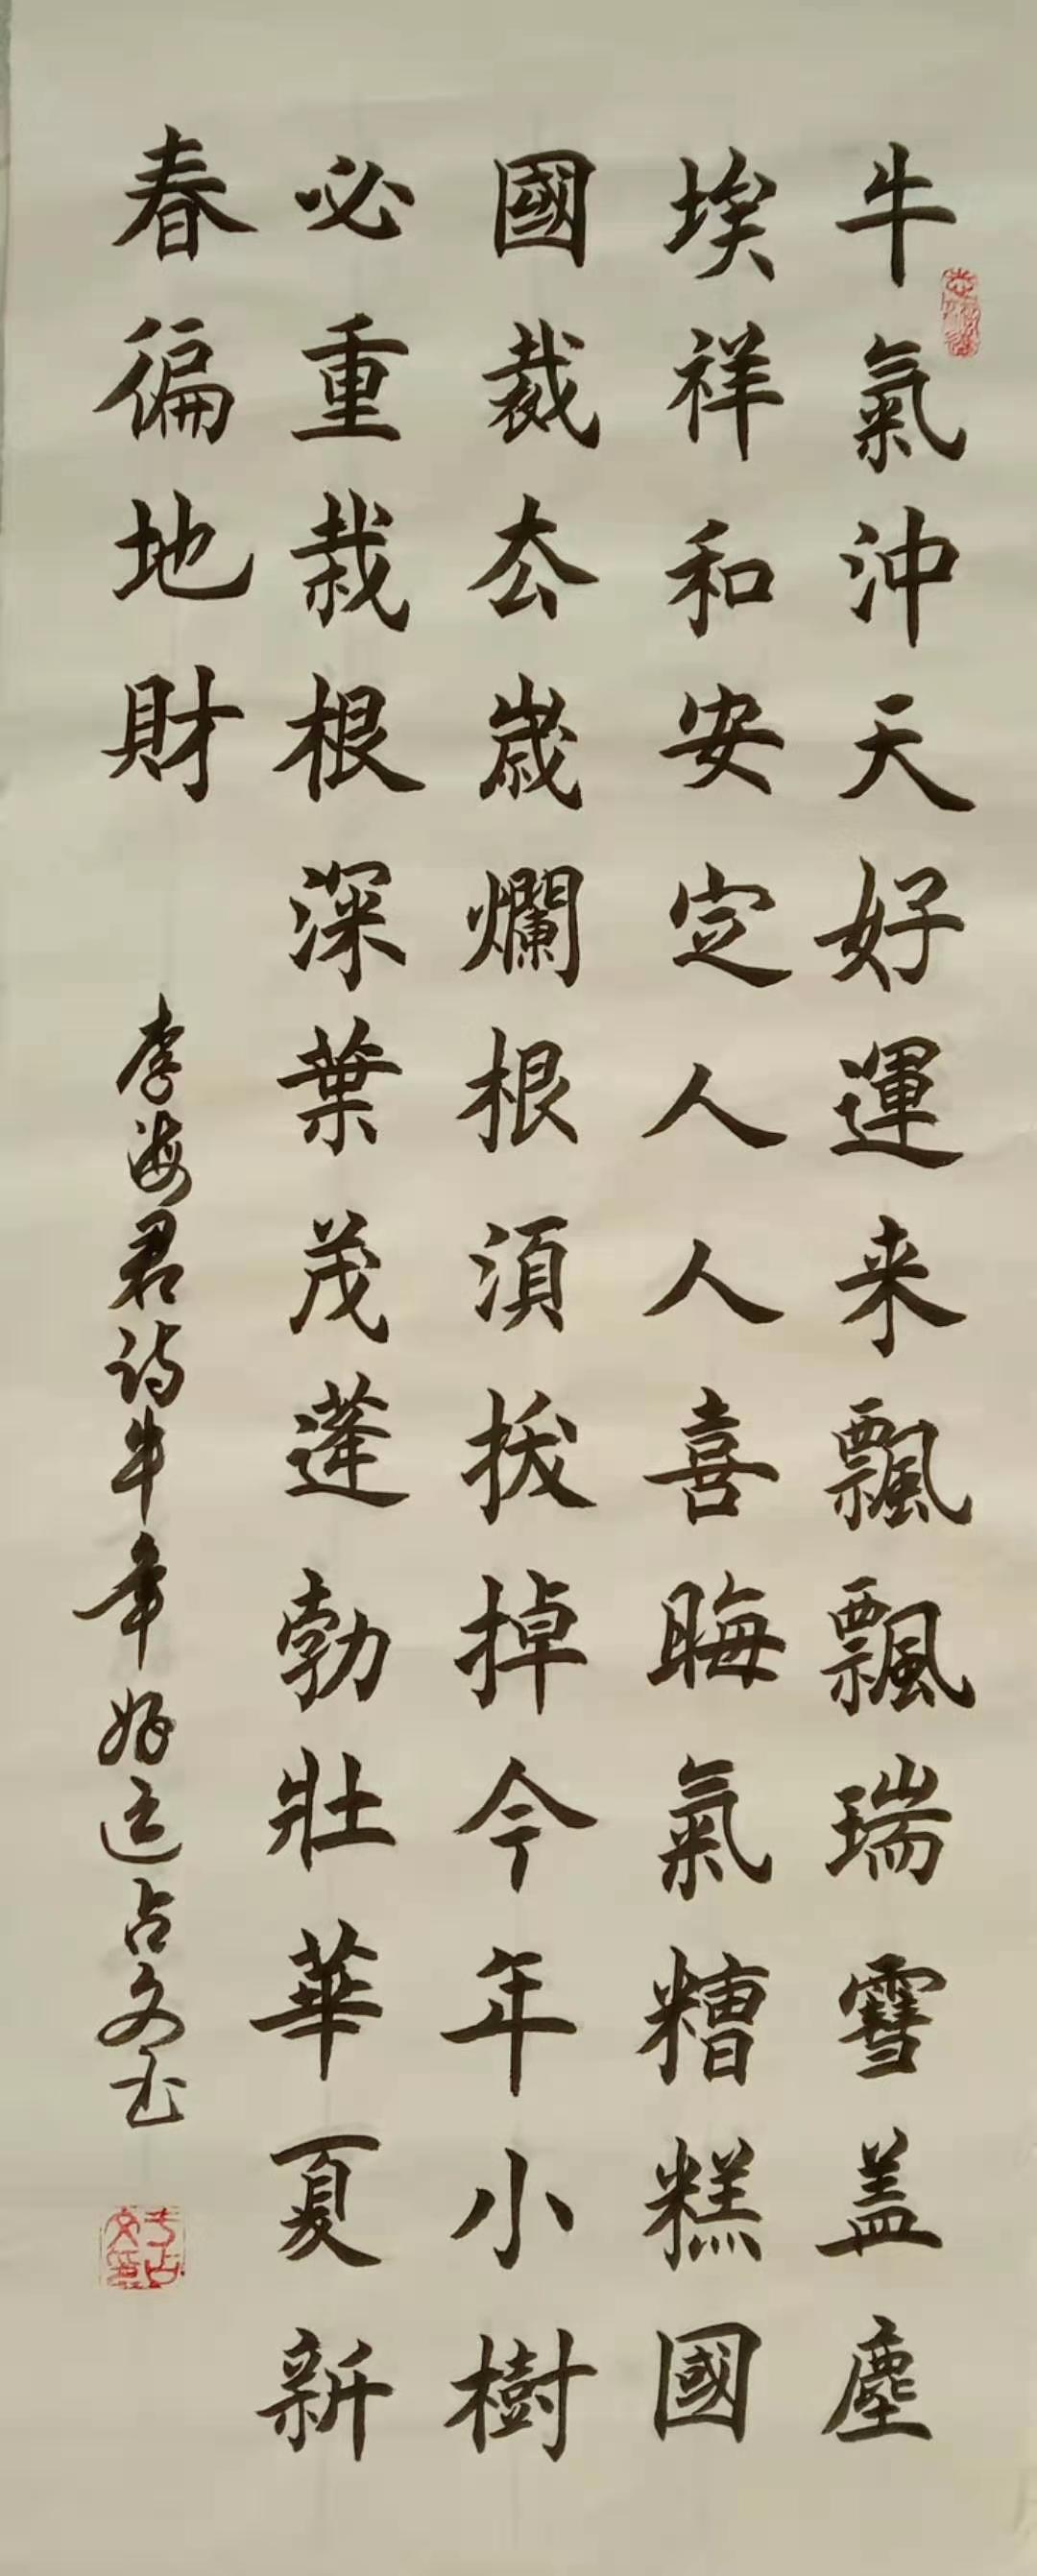 牛氣沖天好運来飄飄瑞雪盖塵
埃祥和安定人人喜晦氣糟糕國
國裁厺歲爛根湏拔掉今年小樹
必重栽根深葉茂蓬勃壯華夏新
春徧地財
李海君诗牛年好运占文书